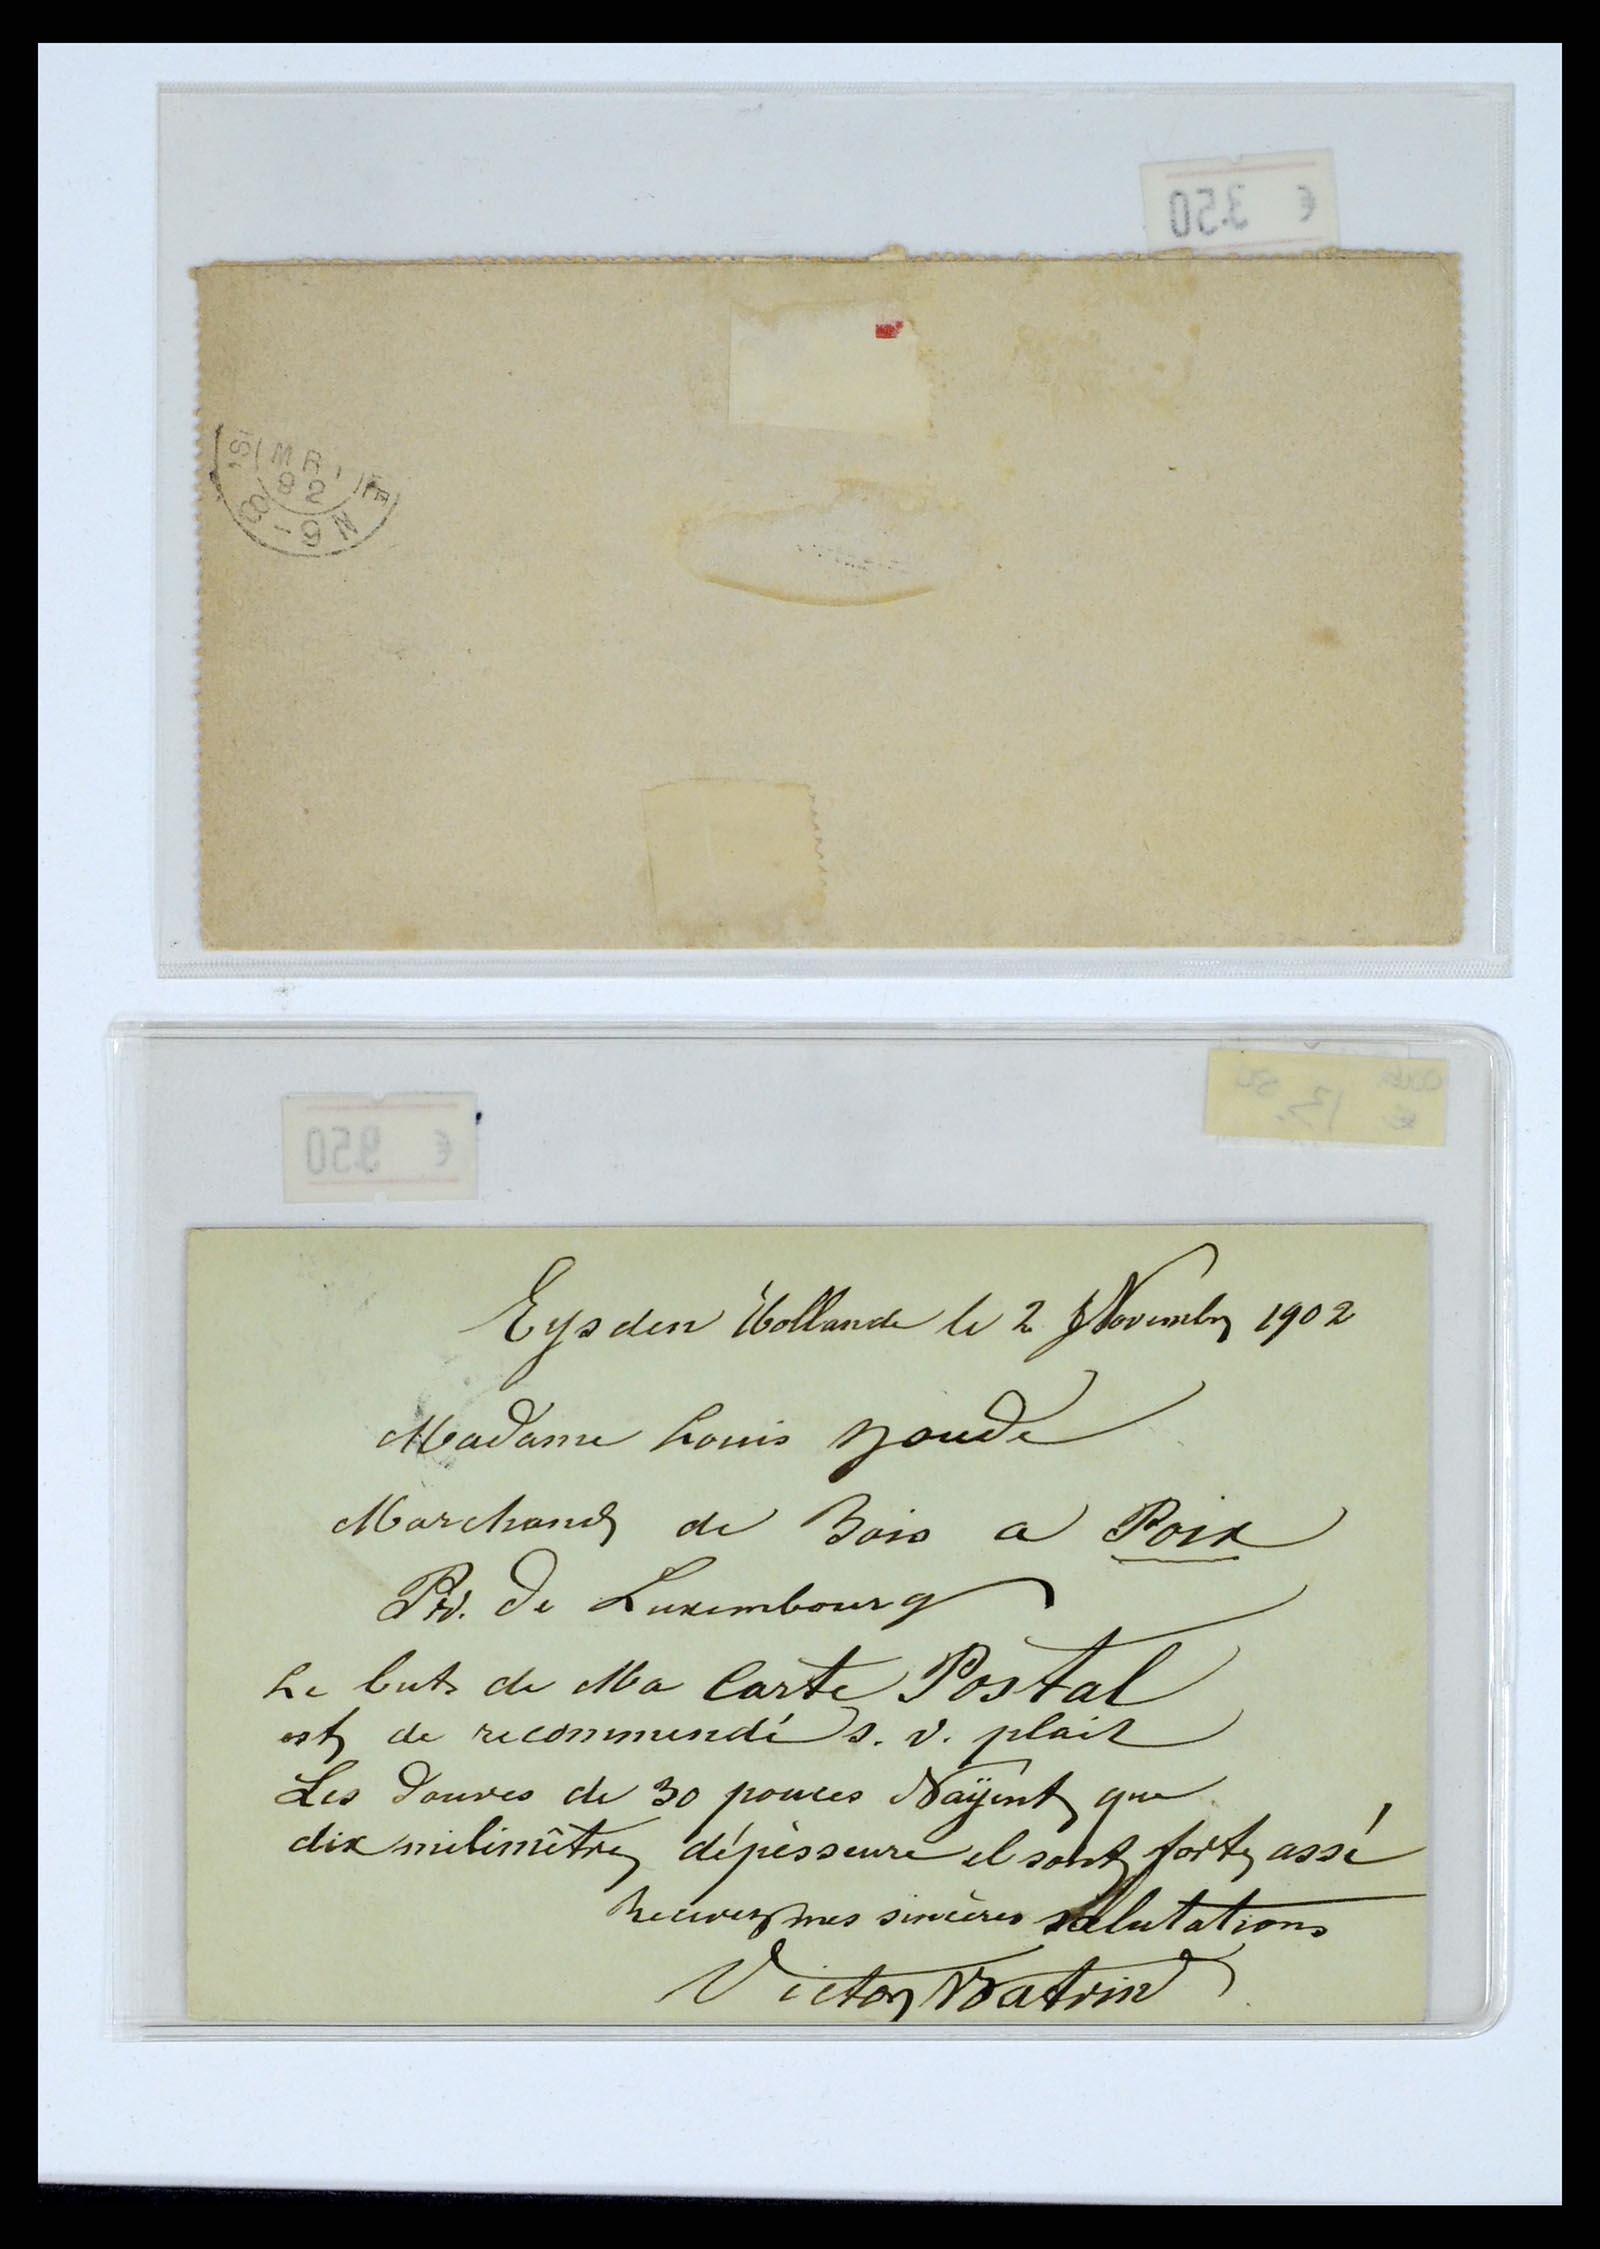 € 3.50
MR
92
8-9N
€ 9.50
Eysden Hollande le 2 Novembre 1902
Madame Louis
Marchand de Bois a Poix
Prv. De Luxembourg
Le but de Ma Carte Postal
est de recommendé s. v. plait
Les Douves de 30 pouces N'ayent que
dix milimêtre dépèsseure el sont forte assé
Recevez mes sincères salutations
Victor Watrin